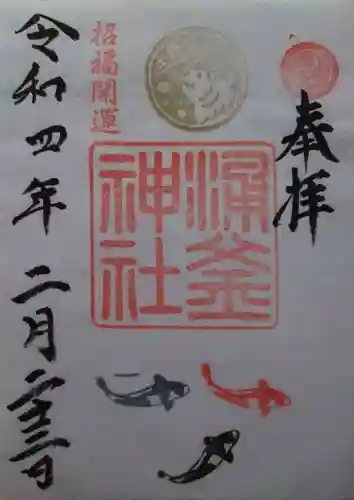 奉拝
涌釜
神社
招福開運
令和四年二月二十三日